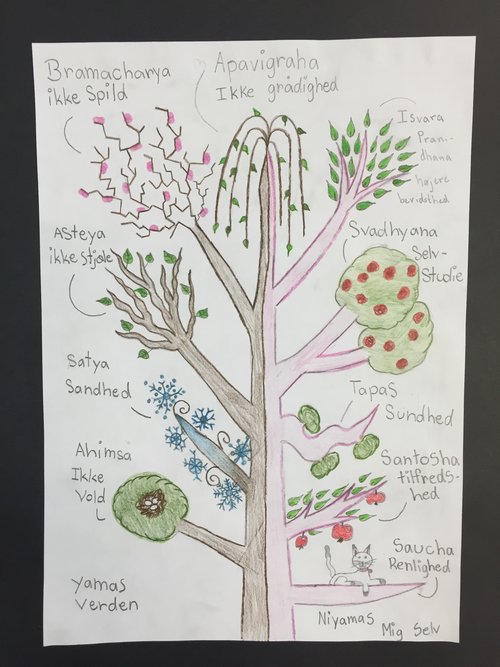 Bramacharya
ikke Spild
Apavigraha
Ikke grådighed
Isvara
Pran-
dhana
højere
bevidsthed
Asteya
ikke Stjæle
Svadhyana
Selv-
Studie
Satya
Sandhed
Tapas
Sundhed
Ahimsa
Ikke
Vold
Santosha
tilfreds-
hed
Saucha
Renlighed
Yamas
Verden
Niyamas
Mig Selv